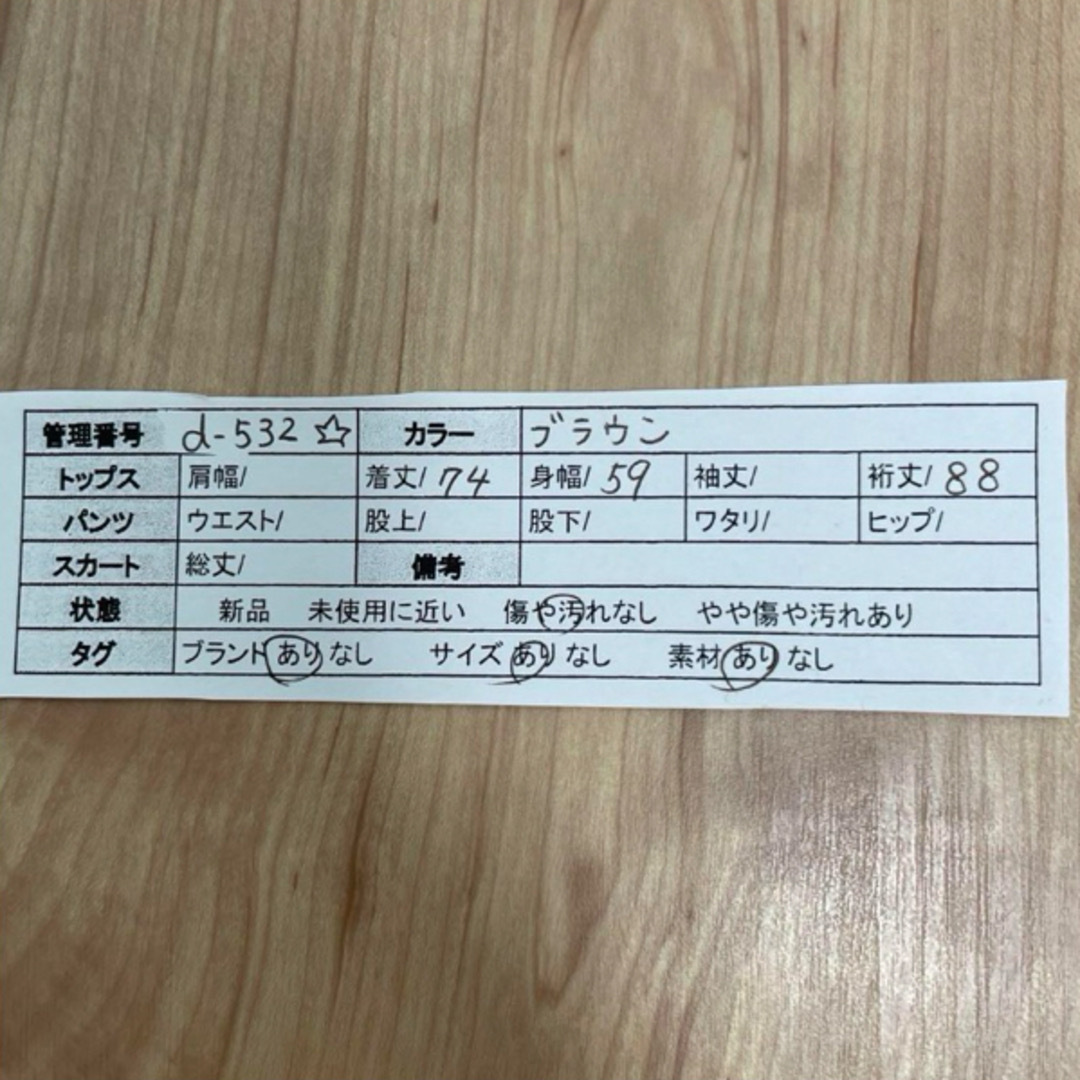 管理番号 d-532 ☆ カラー ブラウン
トップス 肩幅/ 着丈/ 74 身幅/ 59 袖丈/ 裄丈/ 88
パンツ ウエスト/ 股上/ 股下/ ワタリ/ ヒップ/
スカート 総丈/ 備考
状態 新品 未使用に近い 傷や汚れなし やや傷や汚れあり
タグ ブランド あり なし サイズ あり なし 素材 あり なし